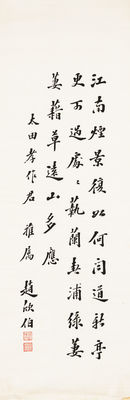 江南煙景復如何聞道新亭
更可過處〻蓺蘭春浦綠萋
萋藉草遠山多應
太田孝作君雅屬
趙欣伯